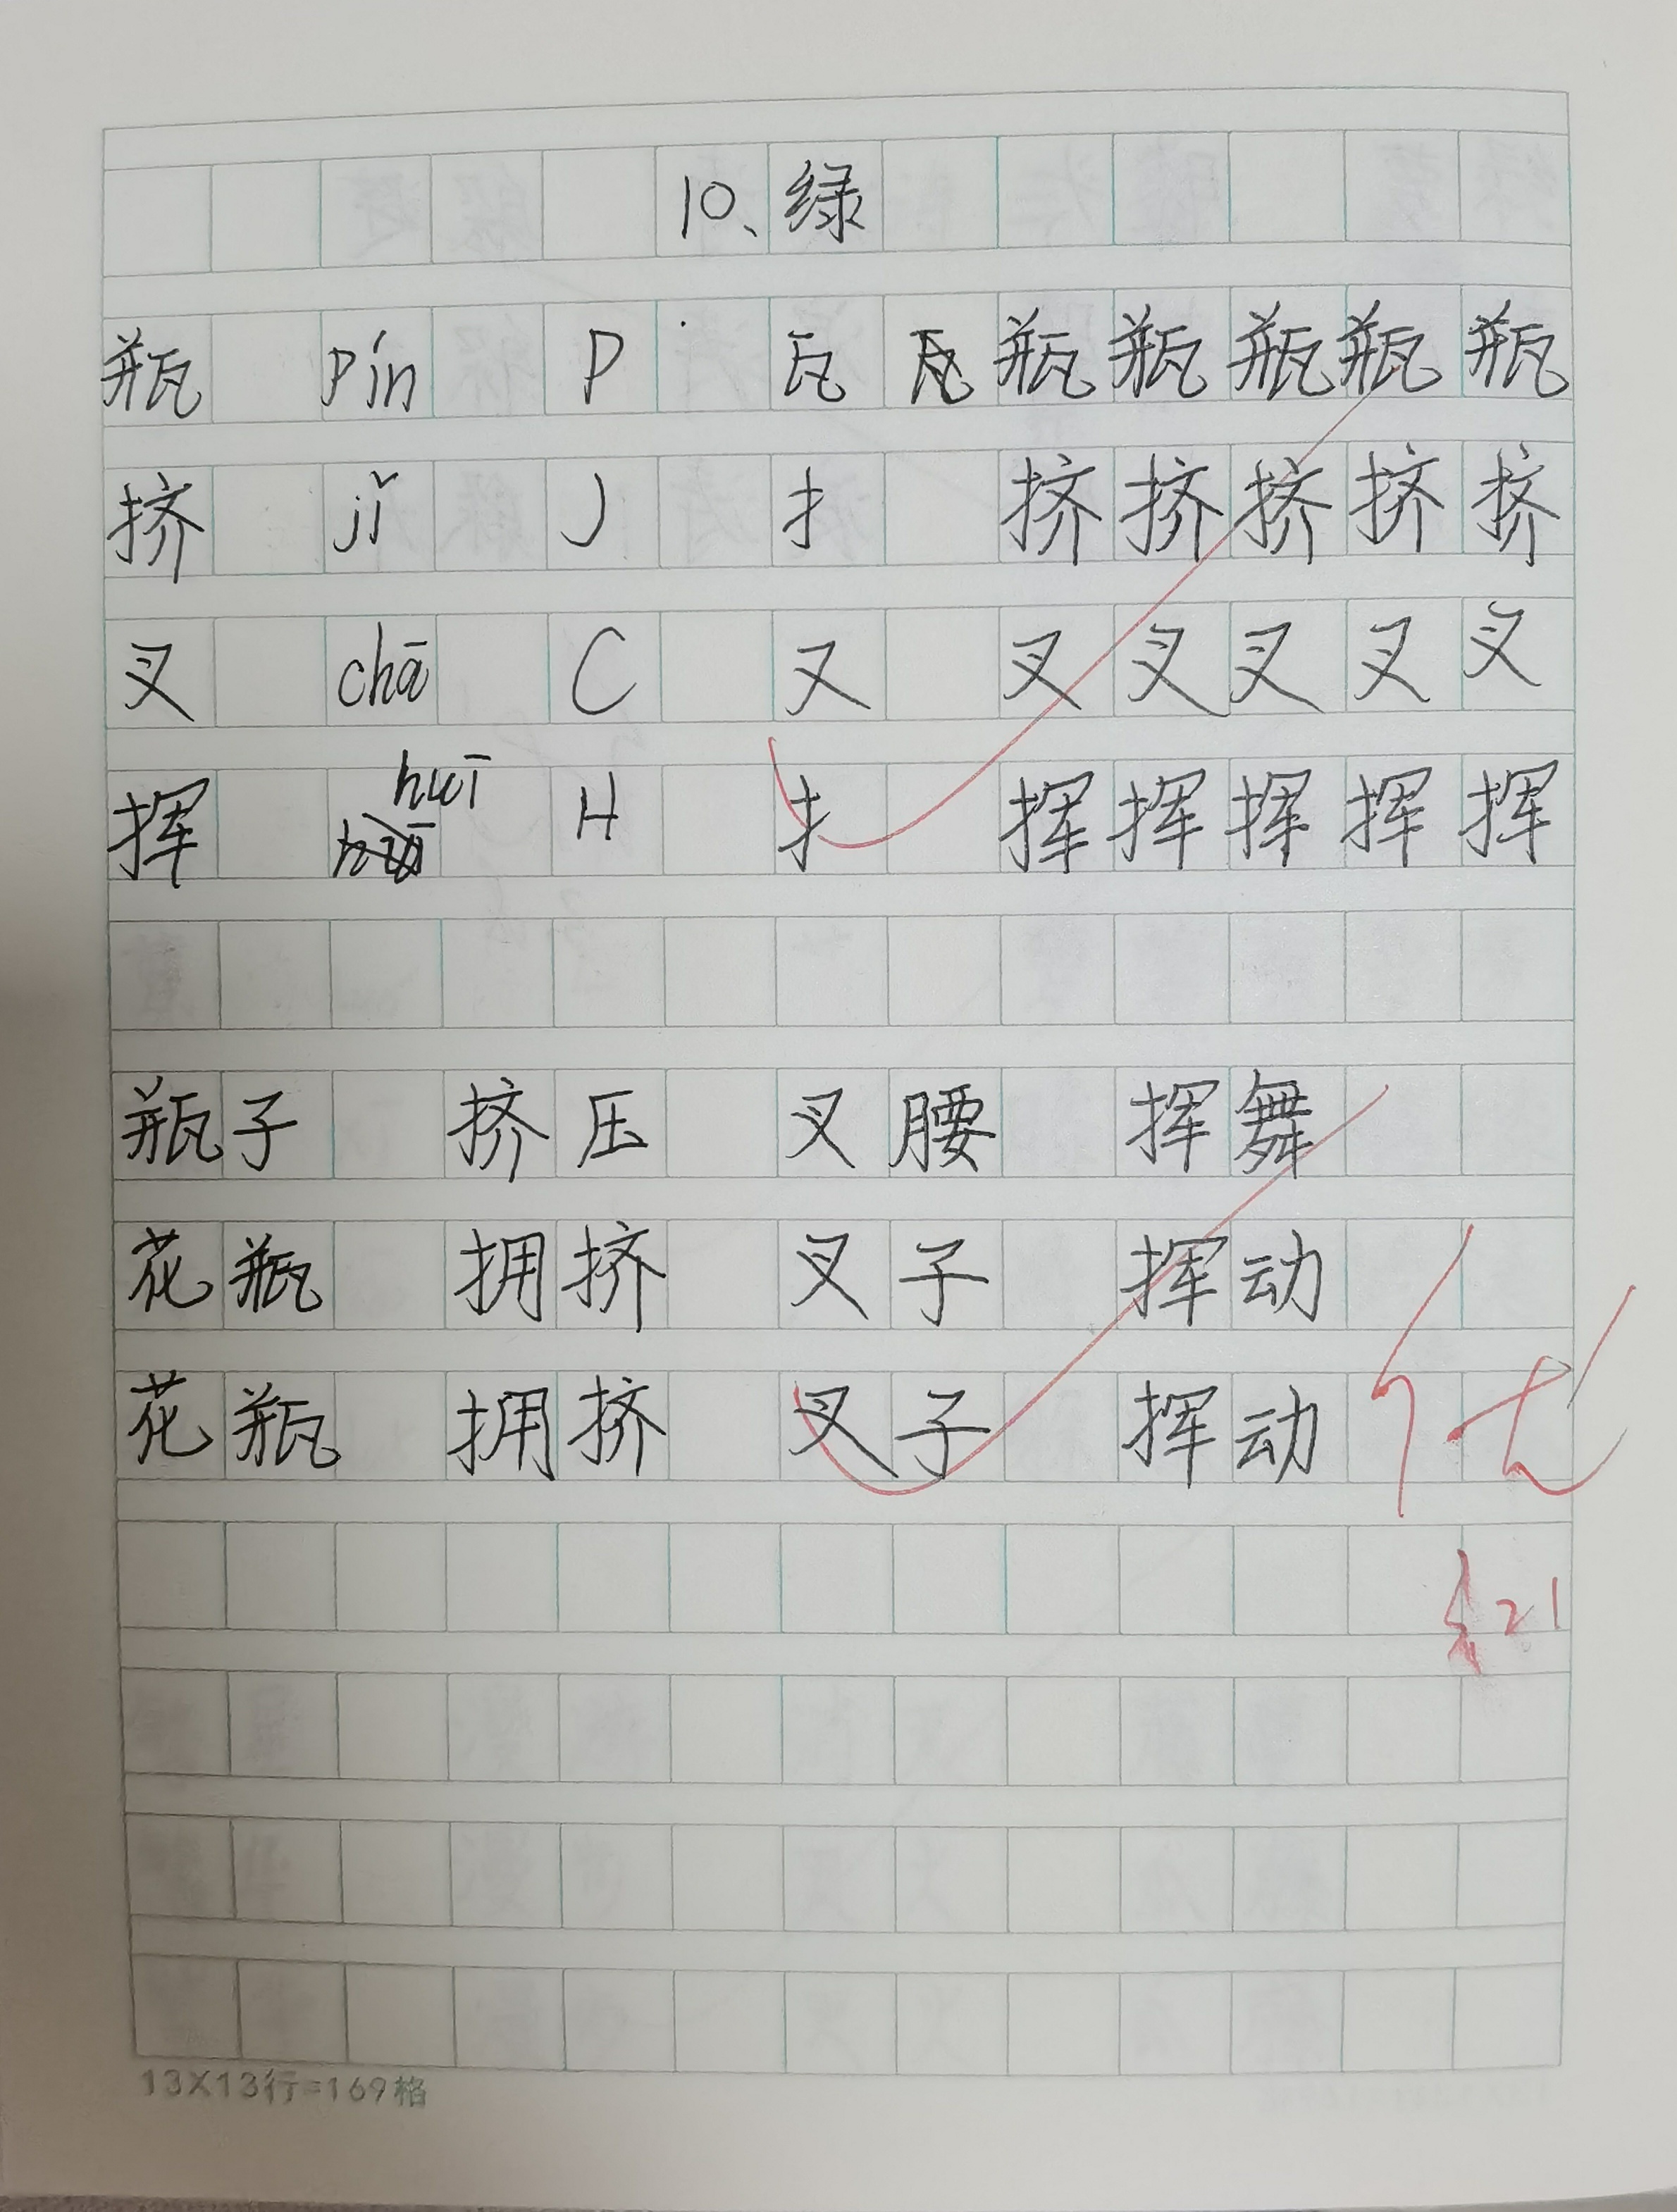 10、绿
瓶 pín P 瓦 瓶 瓶 瓶 瓶 瓶
挤 jǐ J 扌 挤 挤 挤 挤 挤
叉 chā C 又 叉 叉 叉 叉 叉
挥 huī H 扌 挥 挥 挥 挥 挥
瓶子 挤压 叉腰 挥舞
花瓶 拥挤 叉子 挥动
花瓶 拥挤 叉子 挥动
优
21
13X13行=169格